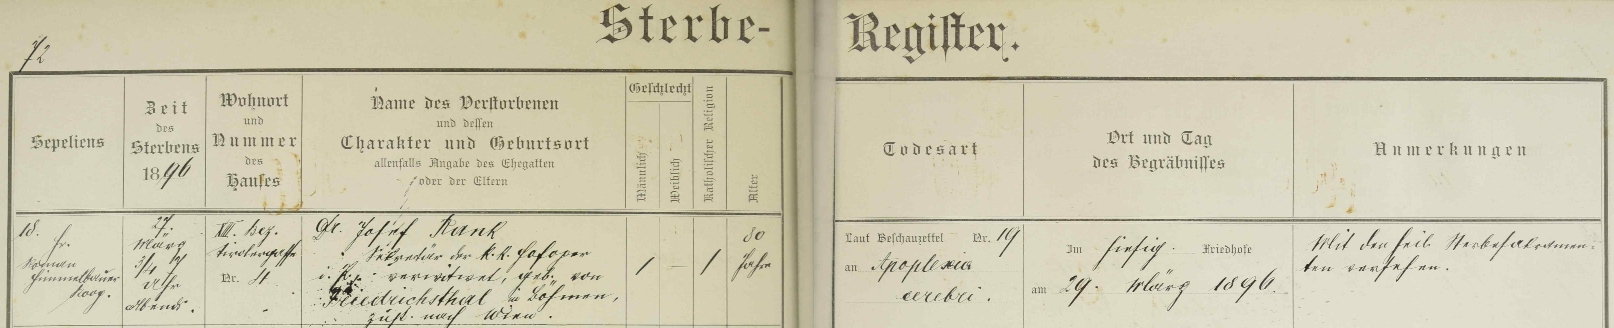 Sterbe-Register.
72
Sepeliens
Zeit
des
Sterbens
1896
Wohnort
und
Nummer
des
Hauses
Name des Verstorbenen
und dessen
Charakter und Geburtsort
allenfalls Angabe des Ehegatten
oder der Eltern
Geschlecht
Männlich
Weiblich
Katholischer Religion
Alter
Todesart
Ort und Tag
des Begräbnisses
Anmerkungen
18.
Fr.
Roman
Himmelbauer
Koop.
27.
März
3/4
Uhr
Abends.
XIII. Bez.
Tirolergasse
Nr. 4
Dr. Josef Rank
Sekretär der k. k. Hofoper
i. P. verwitwet, geb. von
Friedrichsthal in Böhmen,
zust. nach Wien.
1
—
1
80
Jahre
Laut Beschauzettel Nr. 19
an Apoplexia
cerebri.
Im hiesig. Friedhofe
am 29. März 1896.
Mit den heil. Sterbesakramen-
ten versehen.